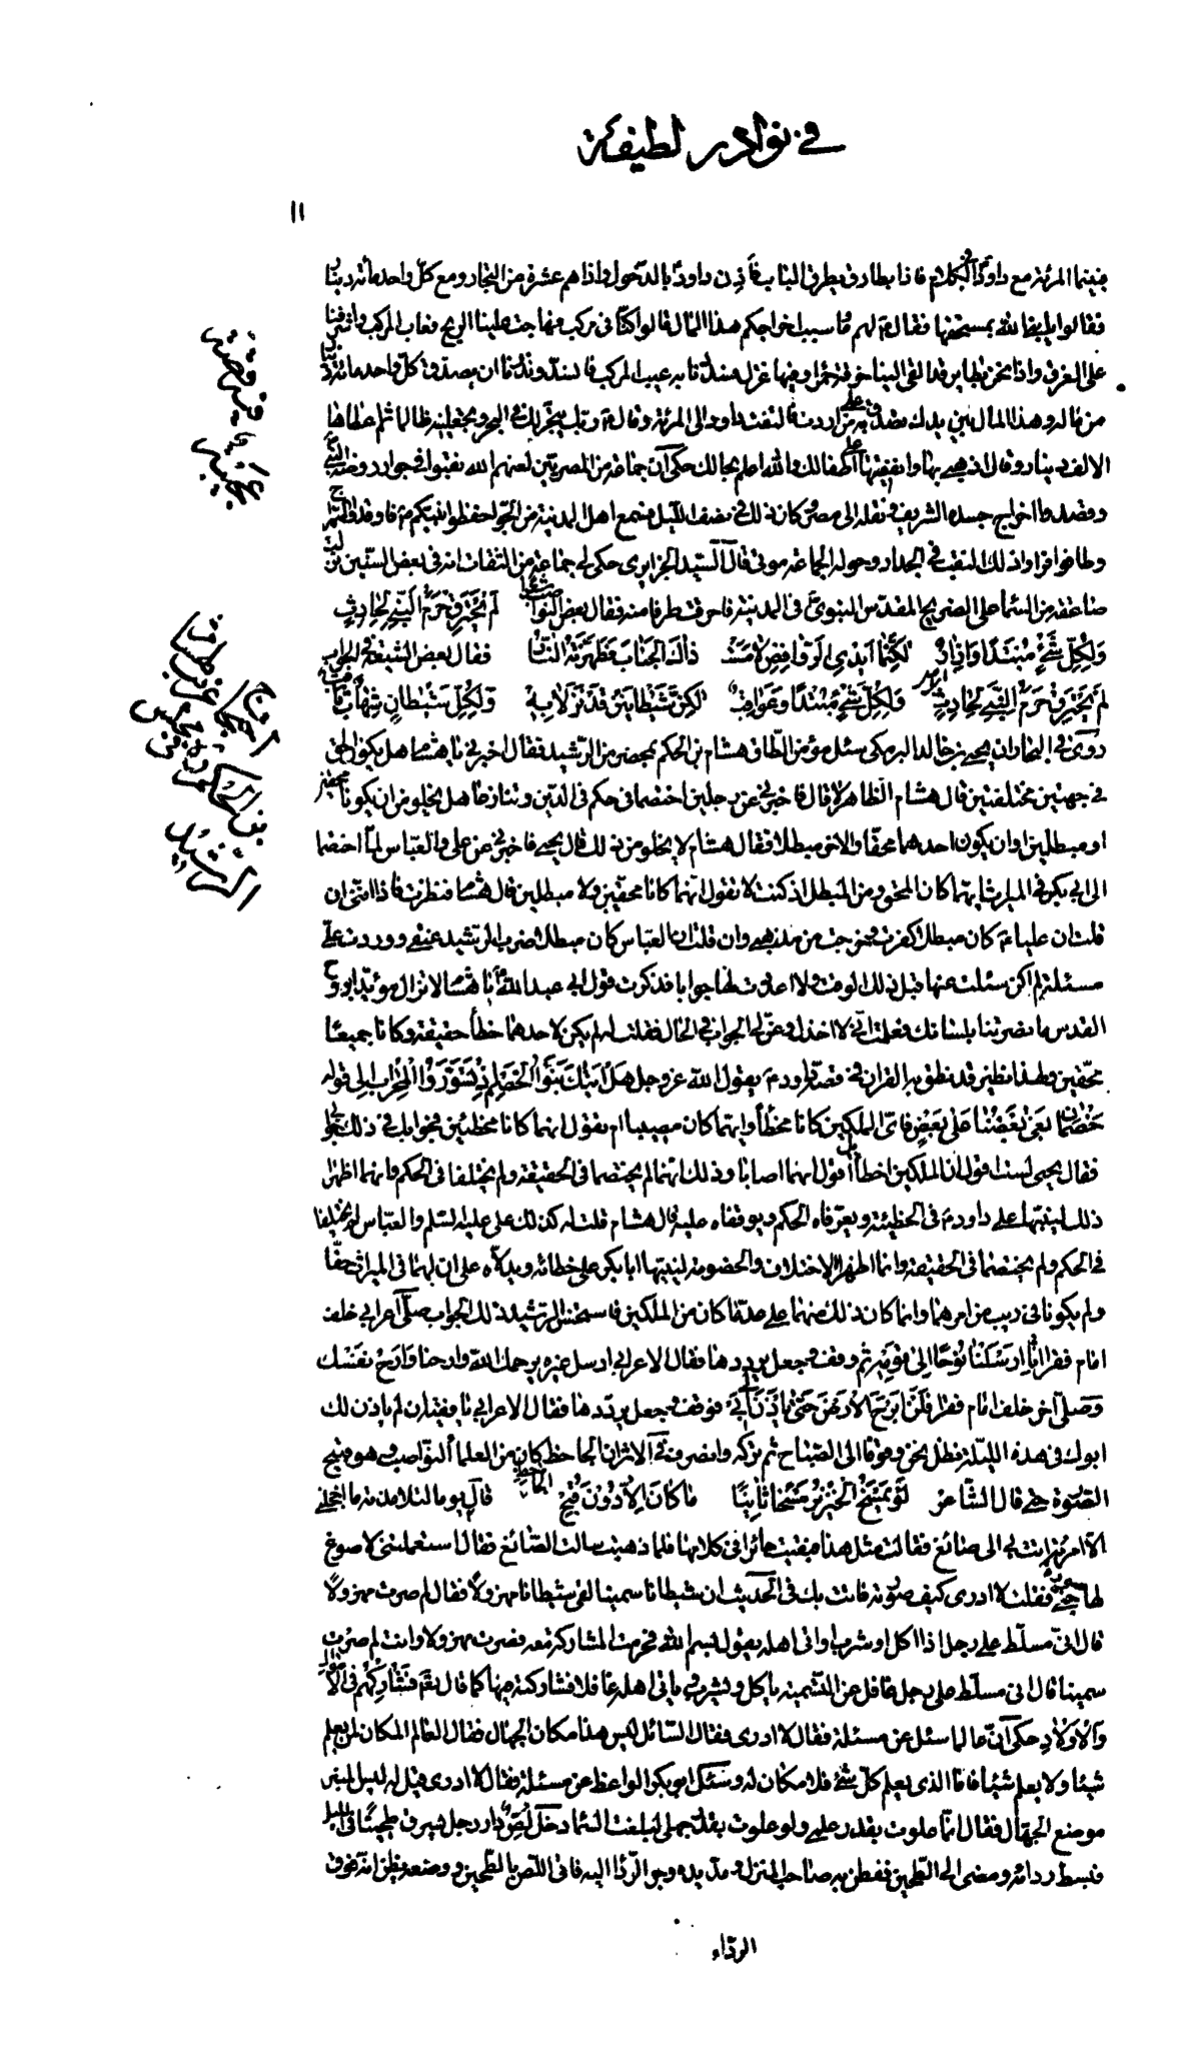 في نوادر لطيفة
١١
فبينما المرئة مع داود في الكلام فاذا بطارق يطرق الباب فأذن داود بالدخول واذا هم عشرة من التجار ومع كل واحد مأة دينار
فقالوا يا نبي الله بمستحقها فقال لهم ما سبب اخراجكم هذا المال قالوا كنا في مركب فهاجت علينا الريح فعاب المركب واشرفنا
على الغرق واذا نحن بطاير قد القى الينا خرقة حمراء وفيها غزل فسددنا به عيب المركب فانسد ونذرنا ان يصدق كل واحد مائة دينار
من ماله وهذا المال بين يديك فتصدق به على من اردت فالتفت داود الى المرئة وقال ربك يتجر لك في البحر وتجعلينه ظالما ثم اعطاها
الالف دينار وقال اذهبي بها وانفقيها على اطفالك والله اعلم بحالك حكى ان جماعة من المصريين لعنهم الله نقبوا في جوار روضة النبي
وقصدوا اخراج جسده الشريف ونقله الى مصر وكان ذلك في نصف الليل فسمع اهل المدينة من الجو احفظوا نبيكم فاوقدوا الشمع
وطافوا فراوا ذلك النقب في الجدار وحوله الجماعة موتى قال السيد الجزايري حكى لي جماعة من الثقات انه في بعض السنين نزلت
صاعقة من السماء على الضريح المقدس النبوي في المدينة فاحرقت طرفا منه فقال بعض النواصب شعرا لم يحترق حرم النبي لحادث
ولكل شئ مبتدا واذاد لكنما ايدي الروافض لامست ذاك الجناب فطهرته النار فقال بعض الشيعة في الجواب
لم يحترق حرم النبي لحادث ولكل شئ مبتدا وعواقب لكن شيطانين قد نزلا به ولكل شيطان شهاب ثاقب
روى في البحار ان يحيى بن خالد البرمكي سئل مؤمن الطاق هشام بن الحكم بمحضر من الرشيد فقال اخبرني يا هشام هل يكون الحق
في جهتين مختلفتين قال هشام الظاهر لا قال فاخبرني عن رجلين اختصما في حكم في الدين وتنازعا هل يخلو من ان يكونا محقين
او مبطلين او ان يكون احدهما محقا والاخر مبطلا فقال هشام لا يخلو من ذلك قال يحيى فاخبرني عن علي والعباس لما اختصما
الى ابي بكر في الميراث ايهما كان المحق ومن المبطل اذ كنت لا تقول انهما كانا محقين ولا مبطلين قال هشام فنظرت فاذا انني ان
قلت ان عليا كان مبطلا كفرت وخرجت من مذهبي وان قلت ان العباس كان مبطلا ضرب الرشيد عنقي ووردت علي
مسئلة لم اكن سئلت عنها قبل ذلك الوقت ولا اعددت لها جوابا فذكرت قول ابي عبد الله يا هشام لا تزال مؤيدا بروح
القدس ما نصرتنا بلسانك فعلمت اني لا اخذل وعن لي الجواب في الحال فقلت له لم يكن لاحدهما خطأ حقيقة وكانا جميعا
محقين ولهذا نظير قد نطق به القران في قصة داود يقول الله عز وجل هل اتيك نبؤا الخصم اذ تسوروا المحراب الى قوله
خصمان بغى بعضنا على بعض فاي الملكين كان مخطأ وايهما كان مصيبا ام تقول انهما كانا مخطئين فجوابك في ذلك جوابي
فقال يحيى لست اقول ان الملكين اخطأ بل اقول انهما اصابا وذلك انهما لم يختصما في الحقيقة ولم يختلفا في الحكم وانما اظهرا
ذلك لينبها على داود في الخطيئة ويعرفاه الحكم ويوقفاه عليه قال هشام قلت له كذلك علي عليه السلم والعباس لم يختلفا
في الحكم ولم يختصما في الحقيقة وانما اظهرا الاختلاف والخصومة لينبها ابا بكر على خطائه ويدلاه على ان لهما في الميراث حقا
ولم يكونا في ريب من امرهما وانما كان ذلك منهما على حد ما كان من الملكين فاستحسن الرشيد ذلك الجواب صلى اعرابي خلف
امام فقرا انا ارسلنا نوحا الى قومه ثم وقف وجعل يرددها فقال الاعرابي ارسل غيره يرحمك الله وارحنا وارح نفسك
وصلى آخر خلف امام فقرا فلن ابرح الارض حتى ياذن لي ابي فوقف وجعل يرددها فقال الاعرابي يا فقيه ان لم ياذن لك
ابوك في هذه الليلة نظل نحن وقوفا الى الصباح ثم تركه وانصرف قيل الاثران الجاحظ كان من العلماء النواصب وهو قبيح
الصورة حتى قال الشاعر لو يمسخ الخنزير مسخا ثانيا ما كان الا دون قبح الجاحظ قال يوما لتلامذته ما اخجلني
الا امرئة اتت بي الى صائغ فقالت مثل هذا فبقيت حائرا في كلامها فلما ذهبت سالت الصائغ فقال استعملتني لاصوغ
لها صورة جني فقلت لا ادري كيف صورته فاتت بك في الحديث ان شيطانا سمينا لقى شيطانا مهزولا فقال لم صرت مهزولا
قال اني مسلط على رجل اذا اكل او شرب او اتى اهله يقول بسم الله فحرمت المشاركة معه فصرت مهزولا وانت لم صرت
سمينا قال اني مسلط على رجل غافل عن التسمية ياكل ويشرب وياتي اهله غافلا فشاركته فيها كما قال تعالى وشاركهم في الاموال
والاولاد حكى ان عالما سئل عن مسئلة فقال لا ادري فقال السائل ليس هذا مكان الجهال فقال العالم المكان لمن يعلم
شيئا ولا يعلم شيئا فاما الذي يعلم كل شئ فلا مكان له وسئل ابو بكر الواعظ عن مسئلة فقال لا ادري قيل له ليس المنبر
موضع الجهال فقال انما علوت بقدر علمي ولو علوت بقدر جهلي لبلغت السماء دخل لص دار رجل ليسرق طحينا في الليل
فبسط ردائه ومضى الى الطحين ففطن به صاحب المنزل ومد يده وجر الرداء اليه فاتى اللص بالطحين ووضعه يظن انه فوق
الرداء
فيه قصة
عجيبة
احتجاج طريف
هشام
بن الحكم في مجلس
الرشيد